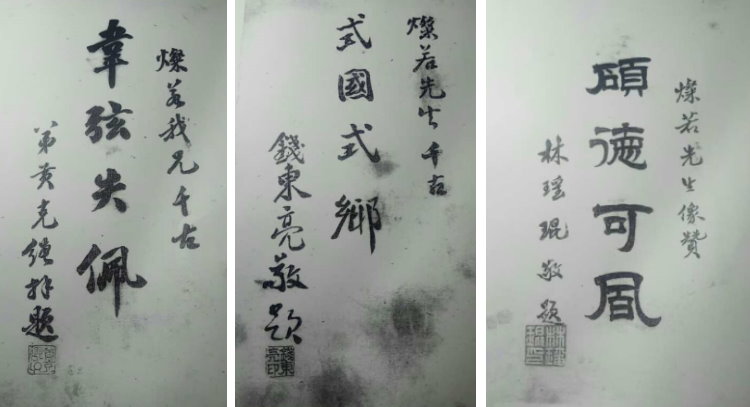 燦若我兄千古
韋弦失佩
弟黄克繩拜題
燦若先生千古
式國式鄉
錢東亮敬題
錢東亮印
燦若先生像贊
碩德可風
林瑤琨敬題